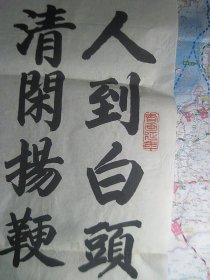 人到白頭
清閑揚鞭